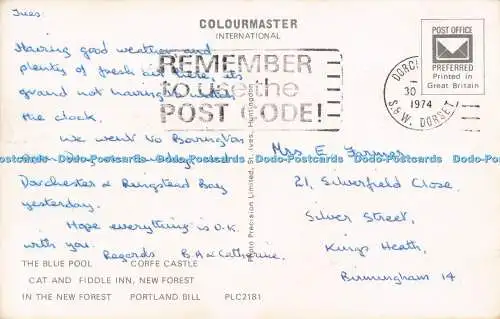 Tues:
COLOURMASTER
INTERNATIONAL
POST OFFICE
PREFERRED
Printed in
Great Britain
REMEMBER
to use the
POST CODE!
30
1974
S.& W. DORSET
Having good weather and
plenty of fresh air here, its
grand not having to watch
the clock.
We went to Barrington
on Sunday
Dorchester & Ringstead Bay
yesterday.
Hope everything is O.K.
with you.
Regards B.A & Catherine.
Photo Precision Limited, St. Ives, Huntingdon
Mrs E. Farmer
21, Silverfield Close,
Silver Street,
Kings Heath,
Birmingham 14
THE BLUE POOL CORFE CASTLE
CAT AND FIDDLE INN, NEW FOREST
IN THE NEW FOREST PORTLAND BILL PLC2181
Dodo-Postcards